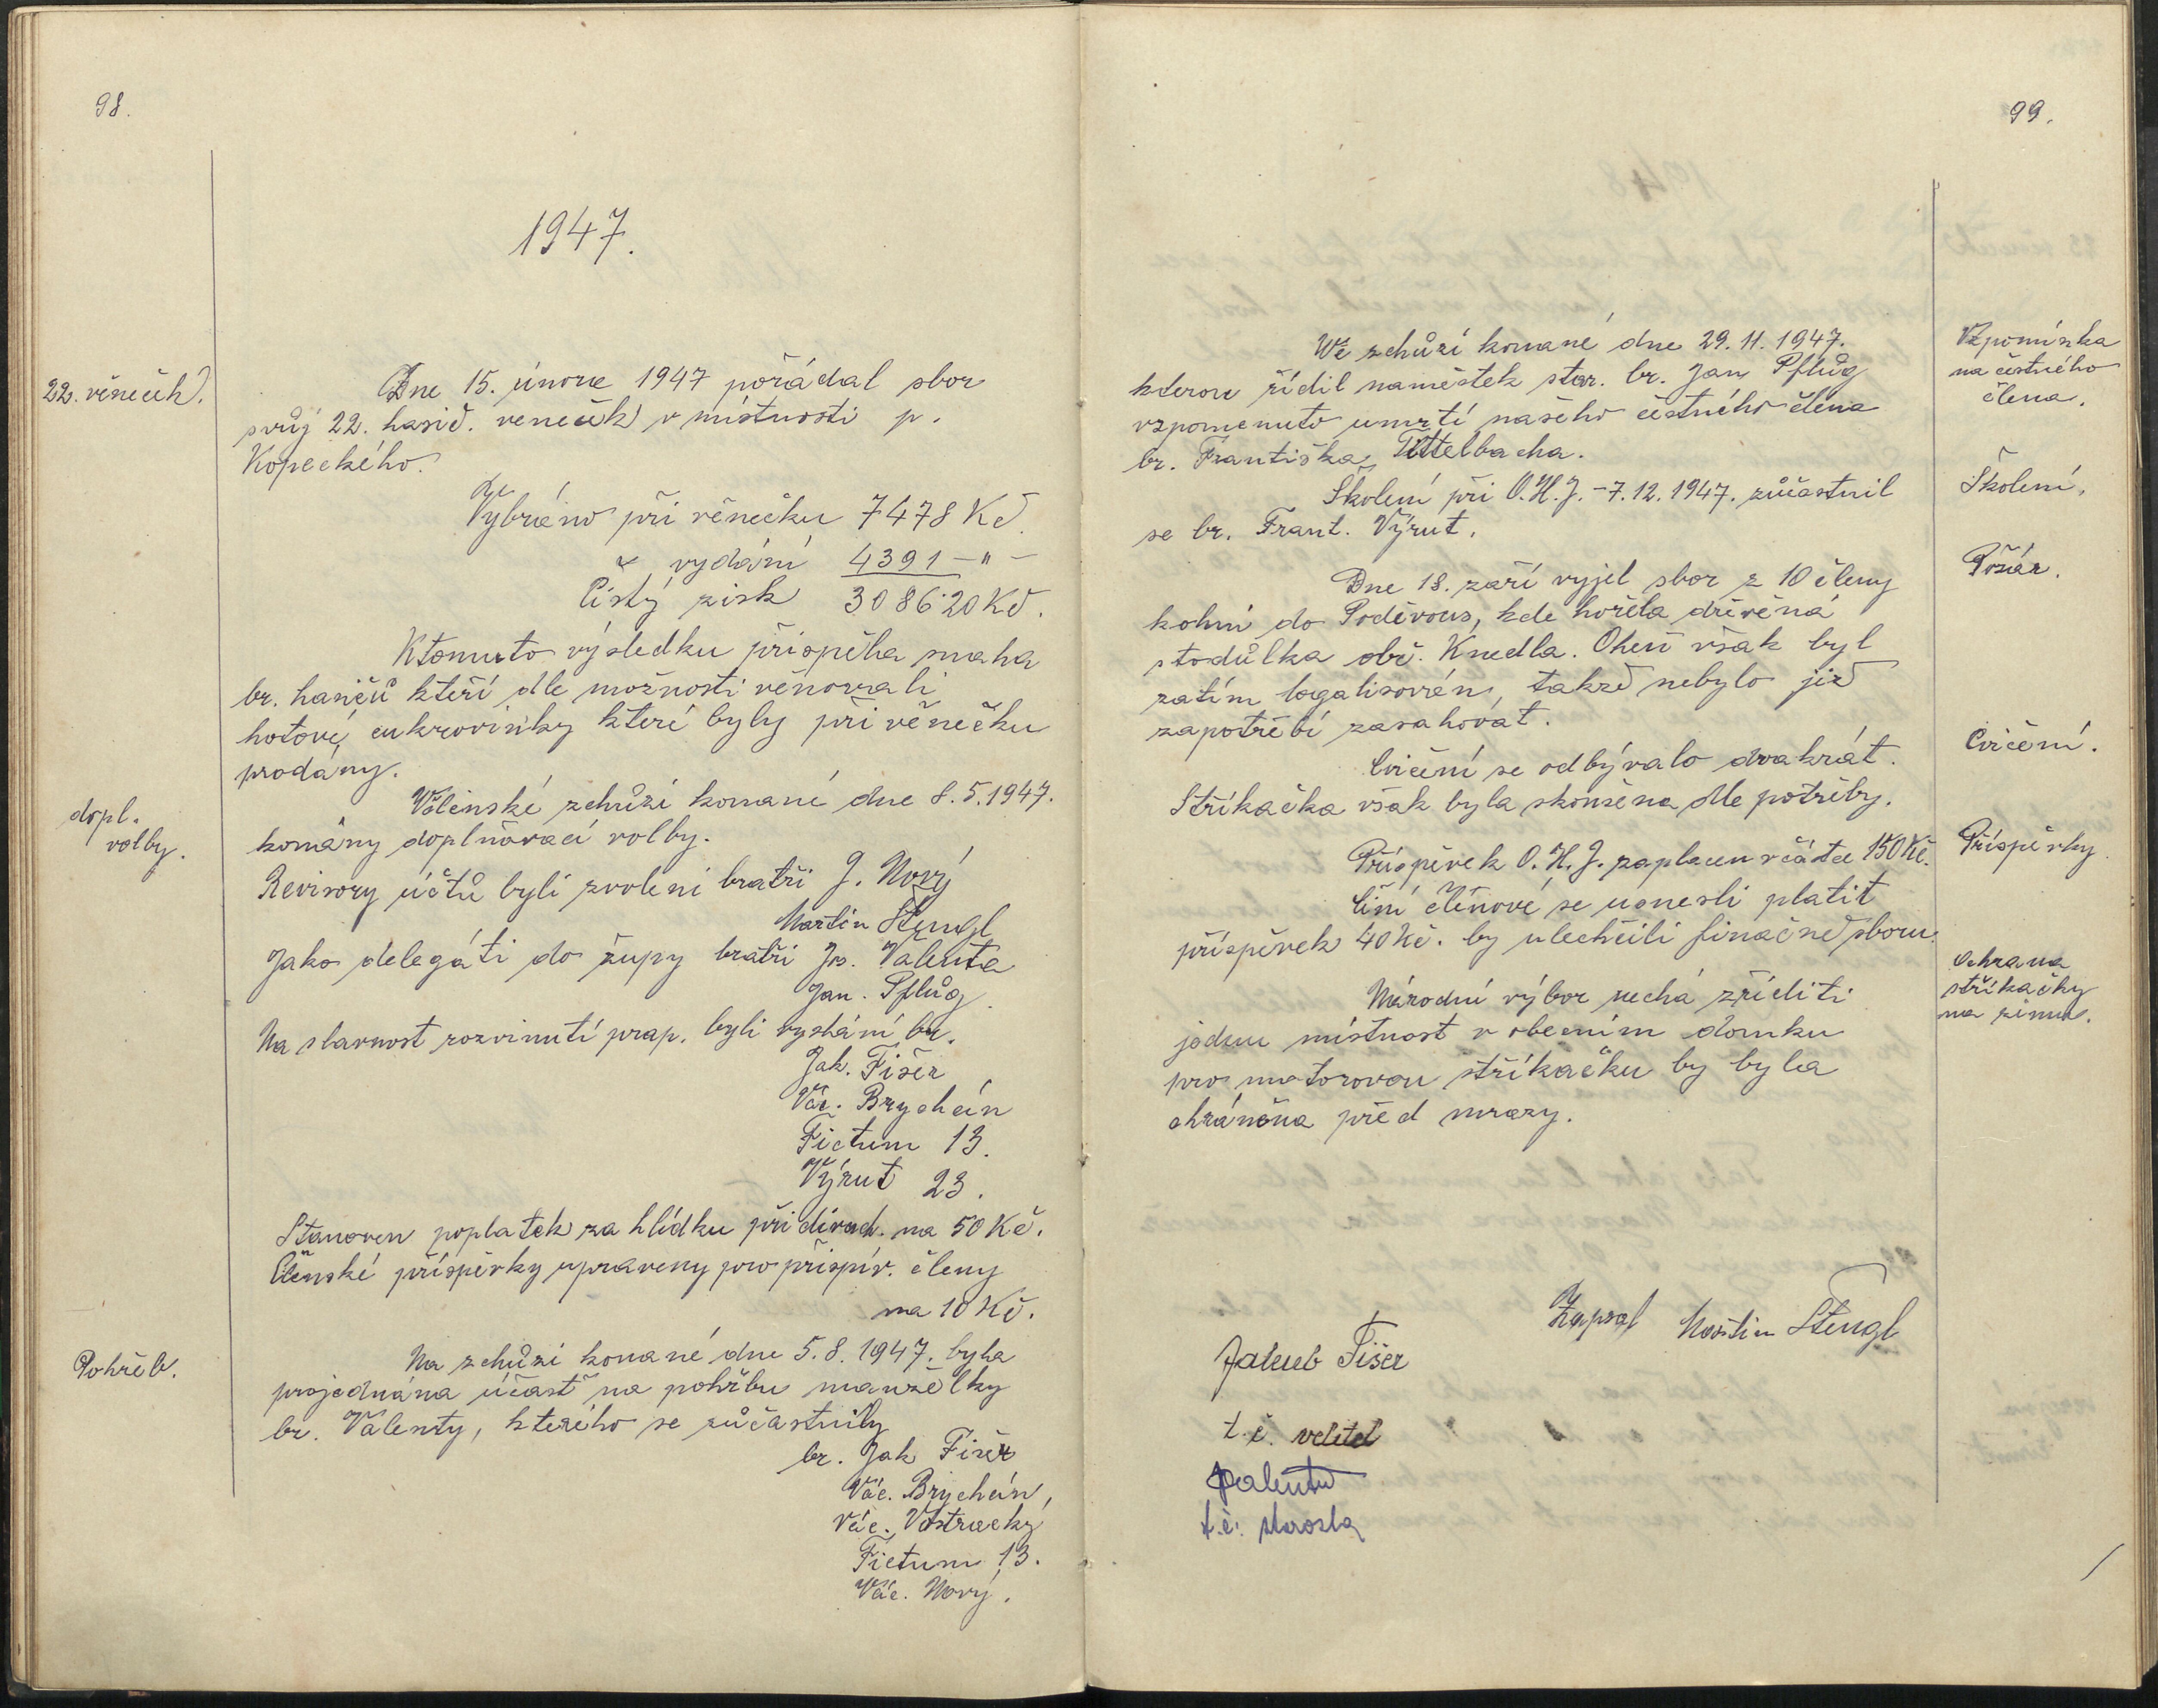 98.
1947.
22. věneček.
Dne 15. února 1947 pořádal sbor
svůj 22. hasič. veneček v místnosti p.
Kopeckého.
Vybráno při věnečku 7478 Kč.
vydání 4391 — " —
Čistý zisk 3086·20 Kč.
K tomuto výsledku přispěla snaha
br. hasičů kteří dle možnosti věnovali
hotové, cukrovinky které byly při věnečku
prodány.
dopl.
volby.
Včlenské schůzi konané dne 8.5.1947.
konány doplňovací volby.
Revisory účtů byli zvoleni bratři J. Nový
Martin Štengl
Jako delegáti do župy bratři Jos. Valenta
Jan. Pflůg.
Na slavnost rozvinutí prap. byli vysláni br.
Jak. Fišer
Vác. Brychcín
Fictum 13.
Výrut 23.
Stanoven poplatek za hlídku při divad. na 50 Kč.
Členské příspěvky upraveny pro přispív. členy
na 10 Kč.
Pohřeb.
Na schůzi konané dne 5.8.1947. byla
projednána účast na pohřbu manželky
br. Valenty, kterého se zůčastnily
br. Jak Fišer
Vác. Brychcín,
Vác. Vostracký
Fictum 13.
Vác. Nový.
99.
Vzpomínka
na čestného
člena.
Ve schůzi konané dne 29.11.1947.
kterou řídil naměstek star. br. Jan Pflůg
vzpomenuto umrtí našeho čestného člena
br. Františka Tittelbacha.
Školení.
Školení při O.H.J. – 7.12.1947. zůčastnil
se br. Frant. Výrut.
Požár.
Dne 18. zaří vyjel sbor z 10 členy
kohni do Poděvous, kde hořela dřevěná
stodůlka obč. Knedla. Oheň však byl
zatím logalisován, takže nebylo již
zapotřebí zasahovat.
Cvičení.
Cvičení se odbývalo dvakrát.
Stříkačka však byla skoušena dle potřeby.
Příspěvky
Příspěvek O.H.J. zaplacen včástce 150 Kč.
Činí členové se usnesli platit
příspěvek 40 Kč. by ulechčili finačně sboru.
Ochrana
stříkačky
na zimu.
Národní výbor nechá zříditi
jednu místnost v obecním domku
pro motorovou stříkačku by byla
chráněna před mrazy.
Zapsal Martin Štengl
Jakub Fišer
t.č. velitel
Valenta
t.č. starosta